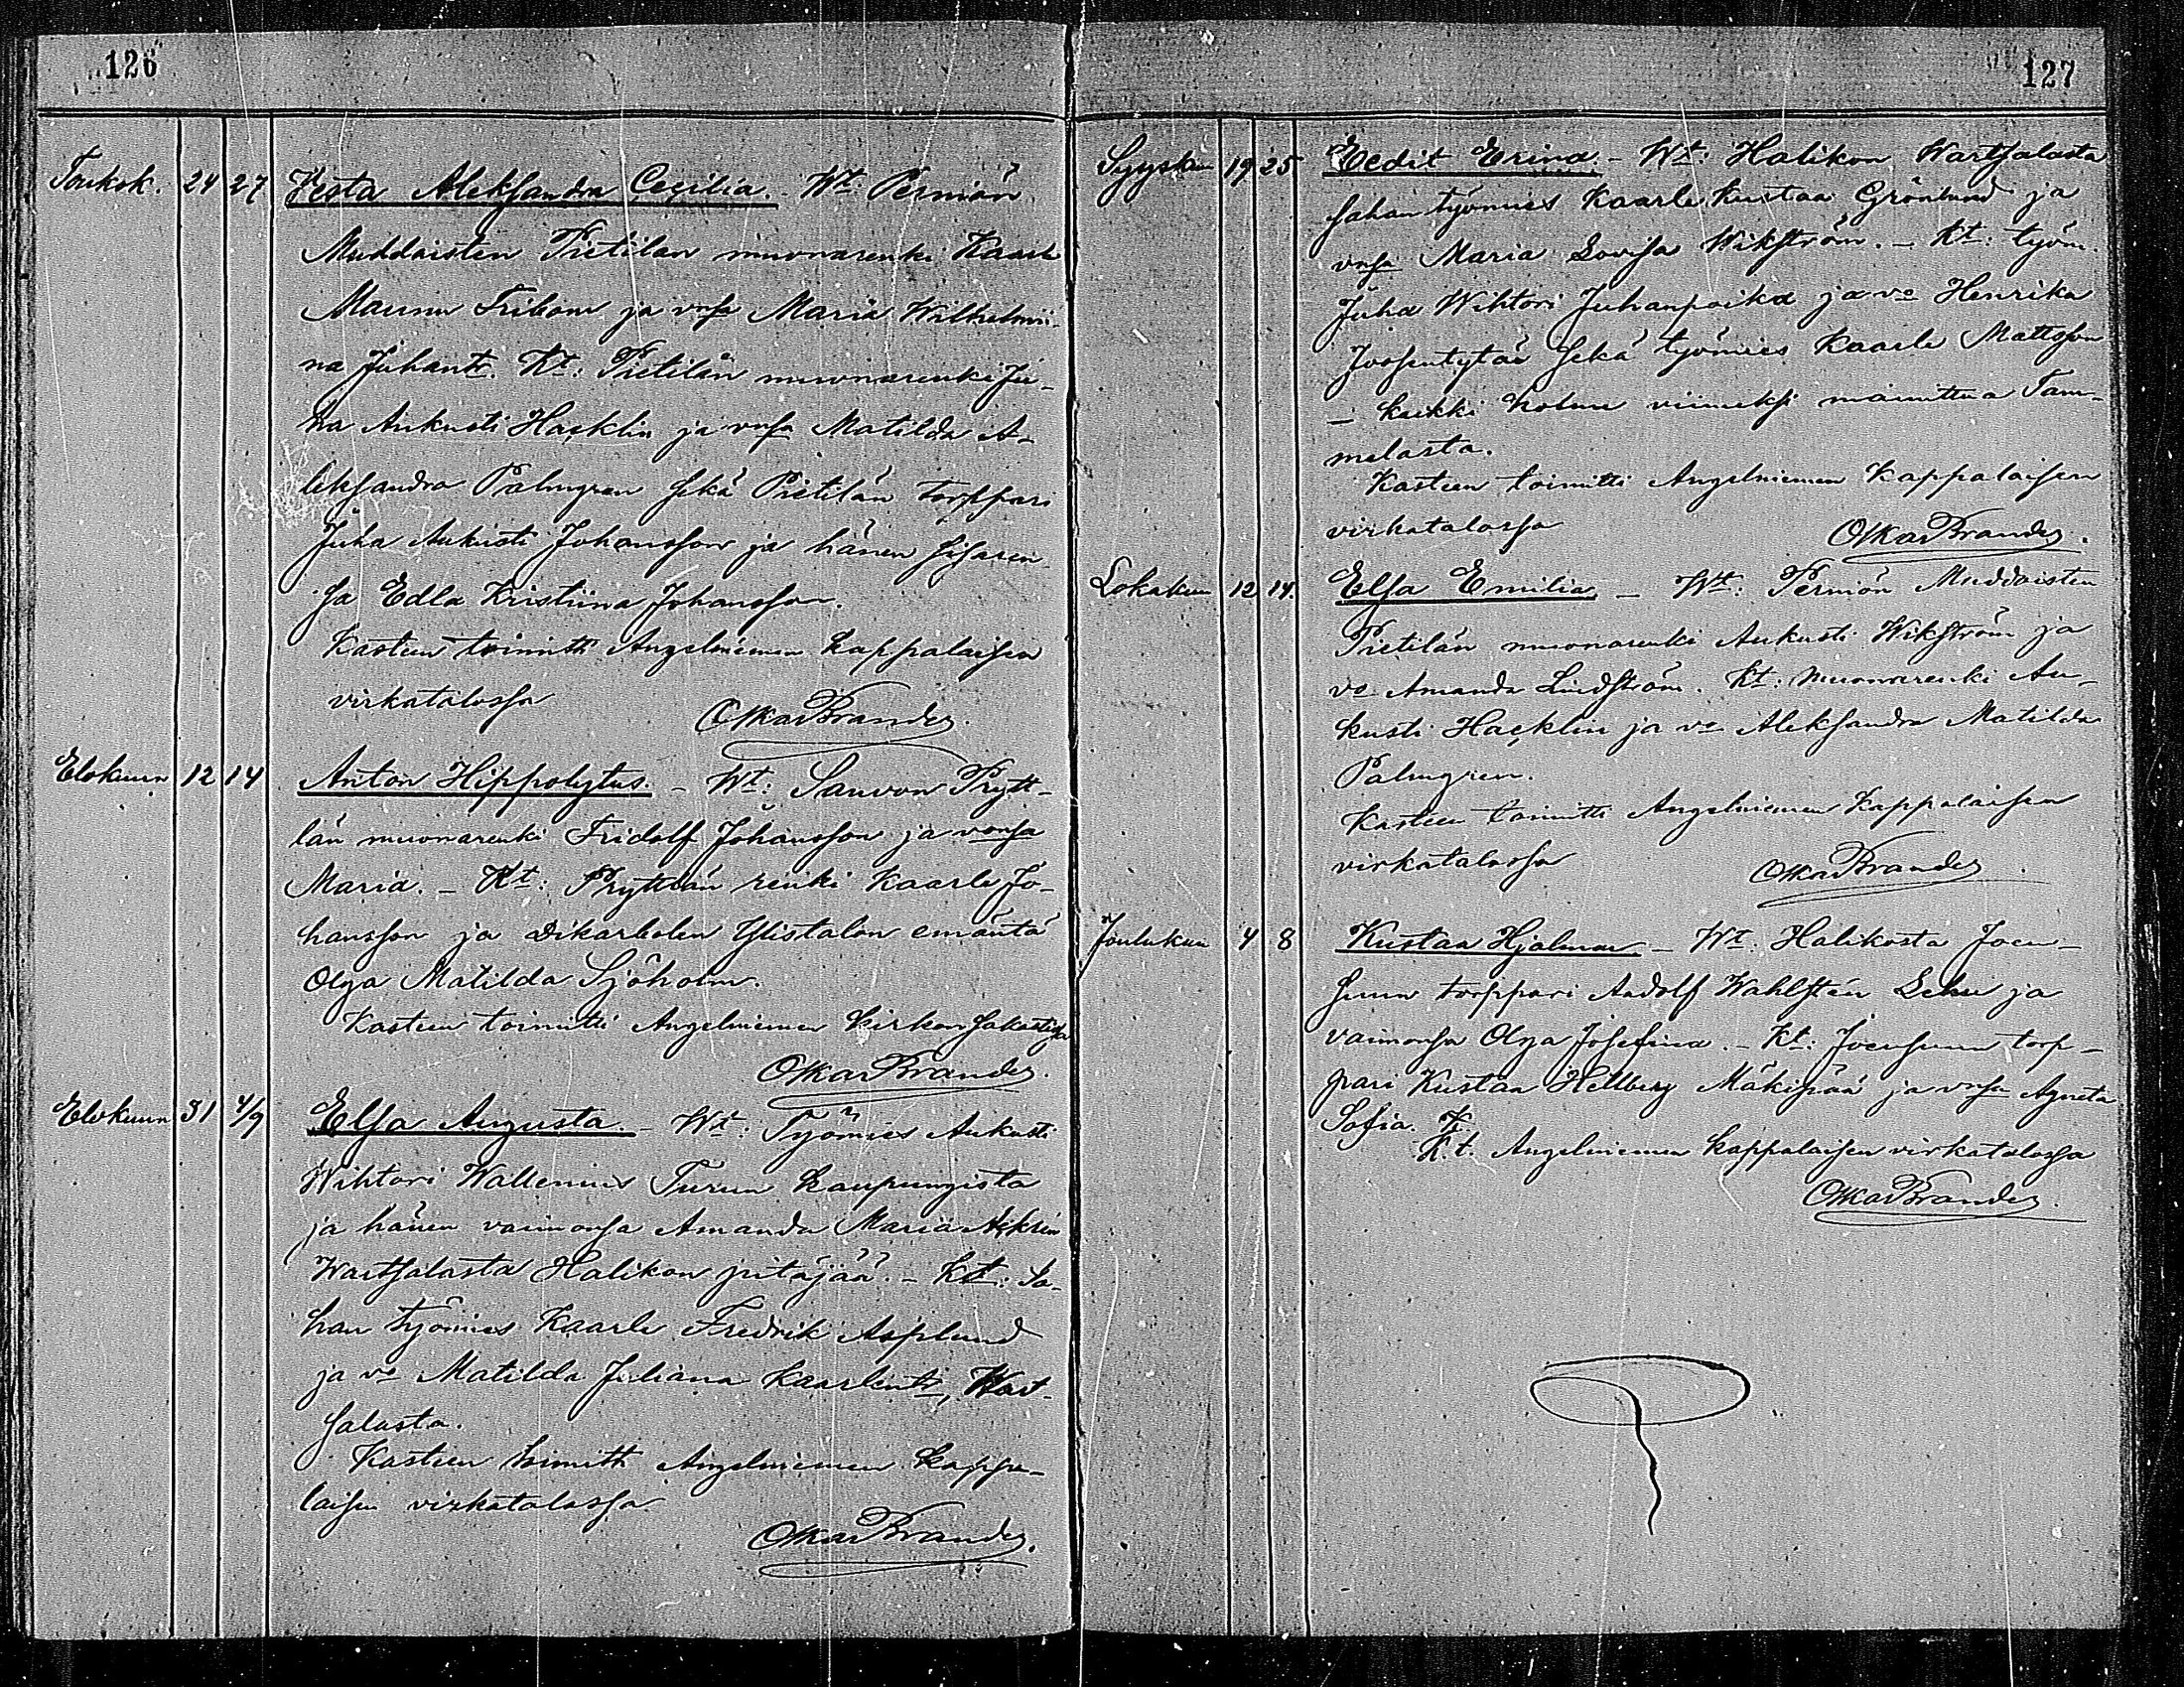 126
Toukok. 24 27 Vesta Aleksandra Cecilia. Wt: Perniön
Muddaisten Pietilän muonarenki Kaarle
Maunu Fribom ja vnsa Maria Wilhelmii-
na Juhantr. Kt: Pietilän muonarenki Ju-
ha Aukusti Hacklin ja vnsa Matilda A-
leksandra Palmgren sekä Pietilän torppari
Juha Aukusti Johansson ja hänen sisaren-
sa Edla Kristiina Johansson.
Kasteen toimitti Angelniemen kappalaisen
virkatalossa Oskar Brander.
Elokuun 12 14 Anton Hippolytus. - Wt: Sauvon Prytt-
län muonarenki Fridolf Johansson ja vonsa
Maria. - Kt: Pryttlän renki Kaarle Jo-
hansson ja Dikarbolen Ylistalon emäntä
Olga Matilda Sjöholm.
Kasteen toimitti Angelniemen kirkon sakastissa
Oskar Brander.
Elokuun 31 4/9 Elsa Augusta. - Wt: Työmies Aukusti
Wihtori Wallenius Turun kaupungista
ja hänen vaimonsa Amanda Maria
Wartsalasta Halikon pitäjää. - Kt: Sa-
han työmies Kaarle Fredrik Asplund
ja vo Matilda Juliana Kaarlentr, Wart-
salasta.
Kasteen toimitti Angelniemen kappa-
laisen virkatalossa
Oskar Brander.
127
Syyskuun 19 25 Eedit Erina. - Wt: Halikon Wartsalasta
sahan työmies Kaarle Kustaa Grönlund ja
vnsa Maria Lovisa Wikström. - Kt: työm.
Juha Wihtori Juhanpoika ja vo Henrika
Joosentytär sekä työmies Kaarle Mattsson
- kaikki kolme viimeksi mainittua Tam-
melasta.
Kasteen toimitti Angelniemen kappalaisen
virkatalossa Oskar Brander.
Lokakuun 12 14. Elsa Emilia - Wt: Perniön Muddaisten
Pietilän muonarenki Aukusti Wikström ja
vo Amanda Lindström. Kt: muonarenki Au-
kusti Hacklin ja vo Aleksandra Matilda
Palmgren.
Kasteen toimitti Angelniemen kappalaisen
virkatalossa Oskar Brander.
Joulukuun 4 8 Kustaa Hjalmar - Wt. Halikosta Joen-
suun torppari Aadolf Wahlstén Lehu ja
vaimonsa Olga Josefina. - Kt: Joensuun torp-
pari Kustaa Hellberg Mäkipää ja vnsa Agneta
Sofia.
K.t. Angelniemen kappalaisen virkatalossa
Oskar Brander.